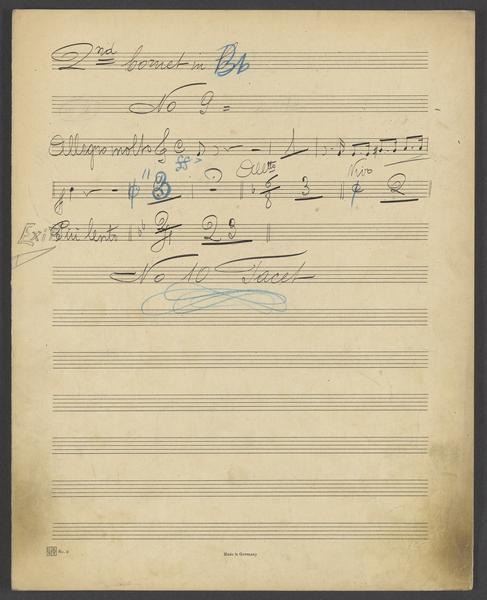 2nd Cornet in Bb
No 9 =
Allegro molto C ff 1
3 Alltto 6/8 3 Vivo ¢ 2
Exit Più lento 2/4 23
No 10 Tacet
No. 2 Made in Germany